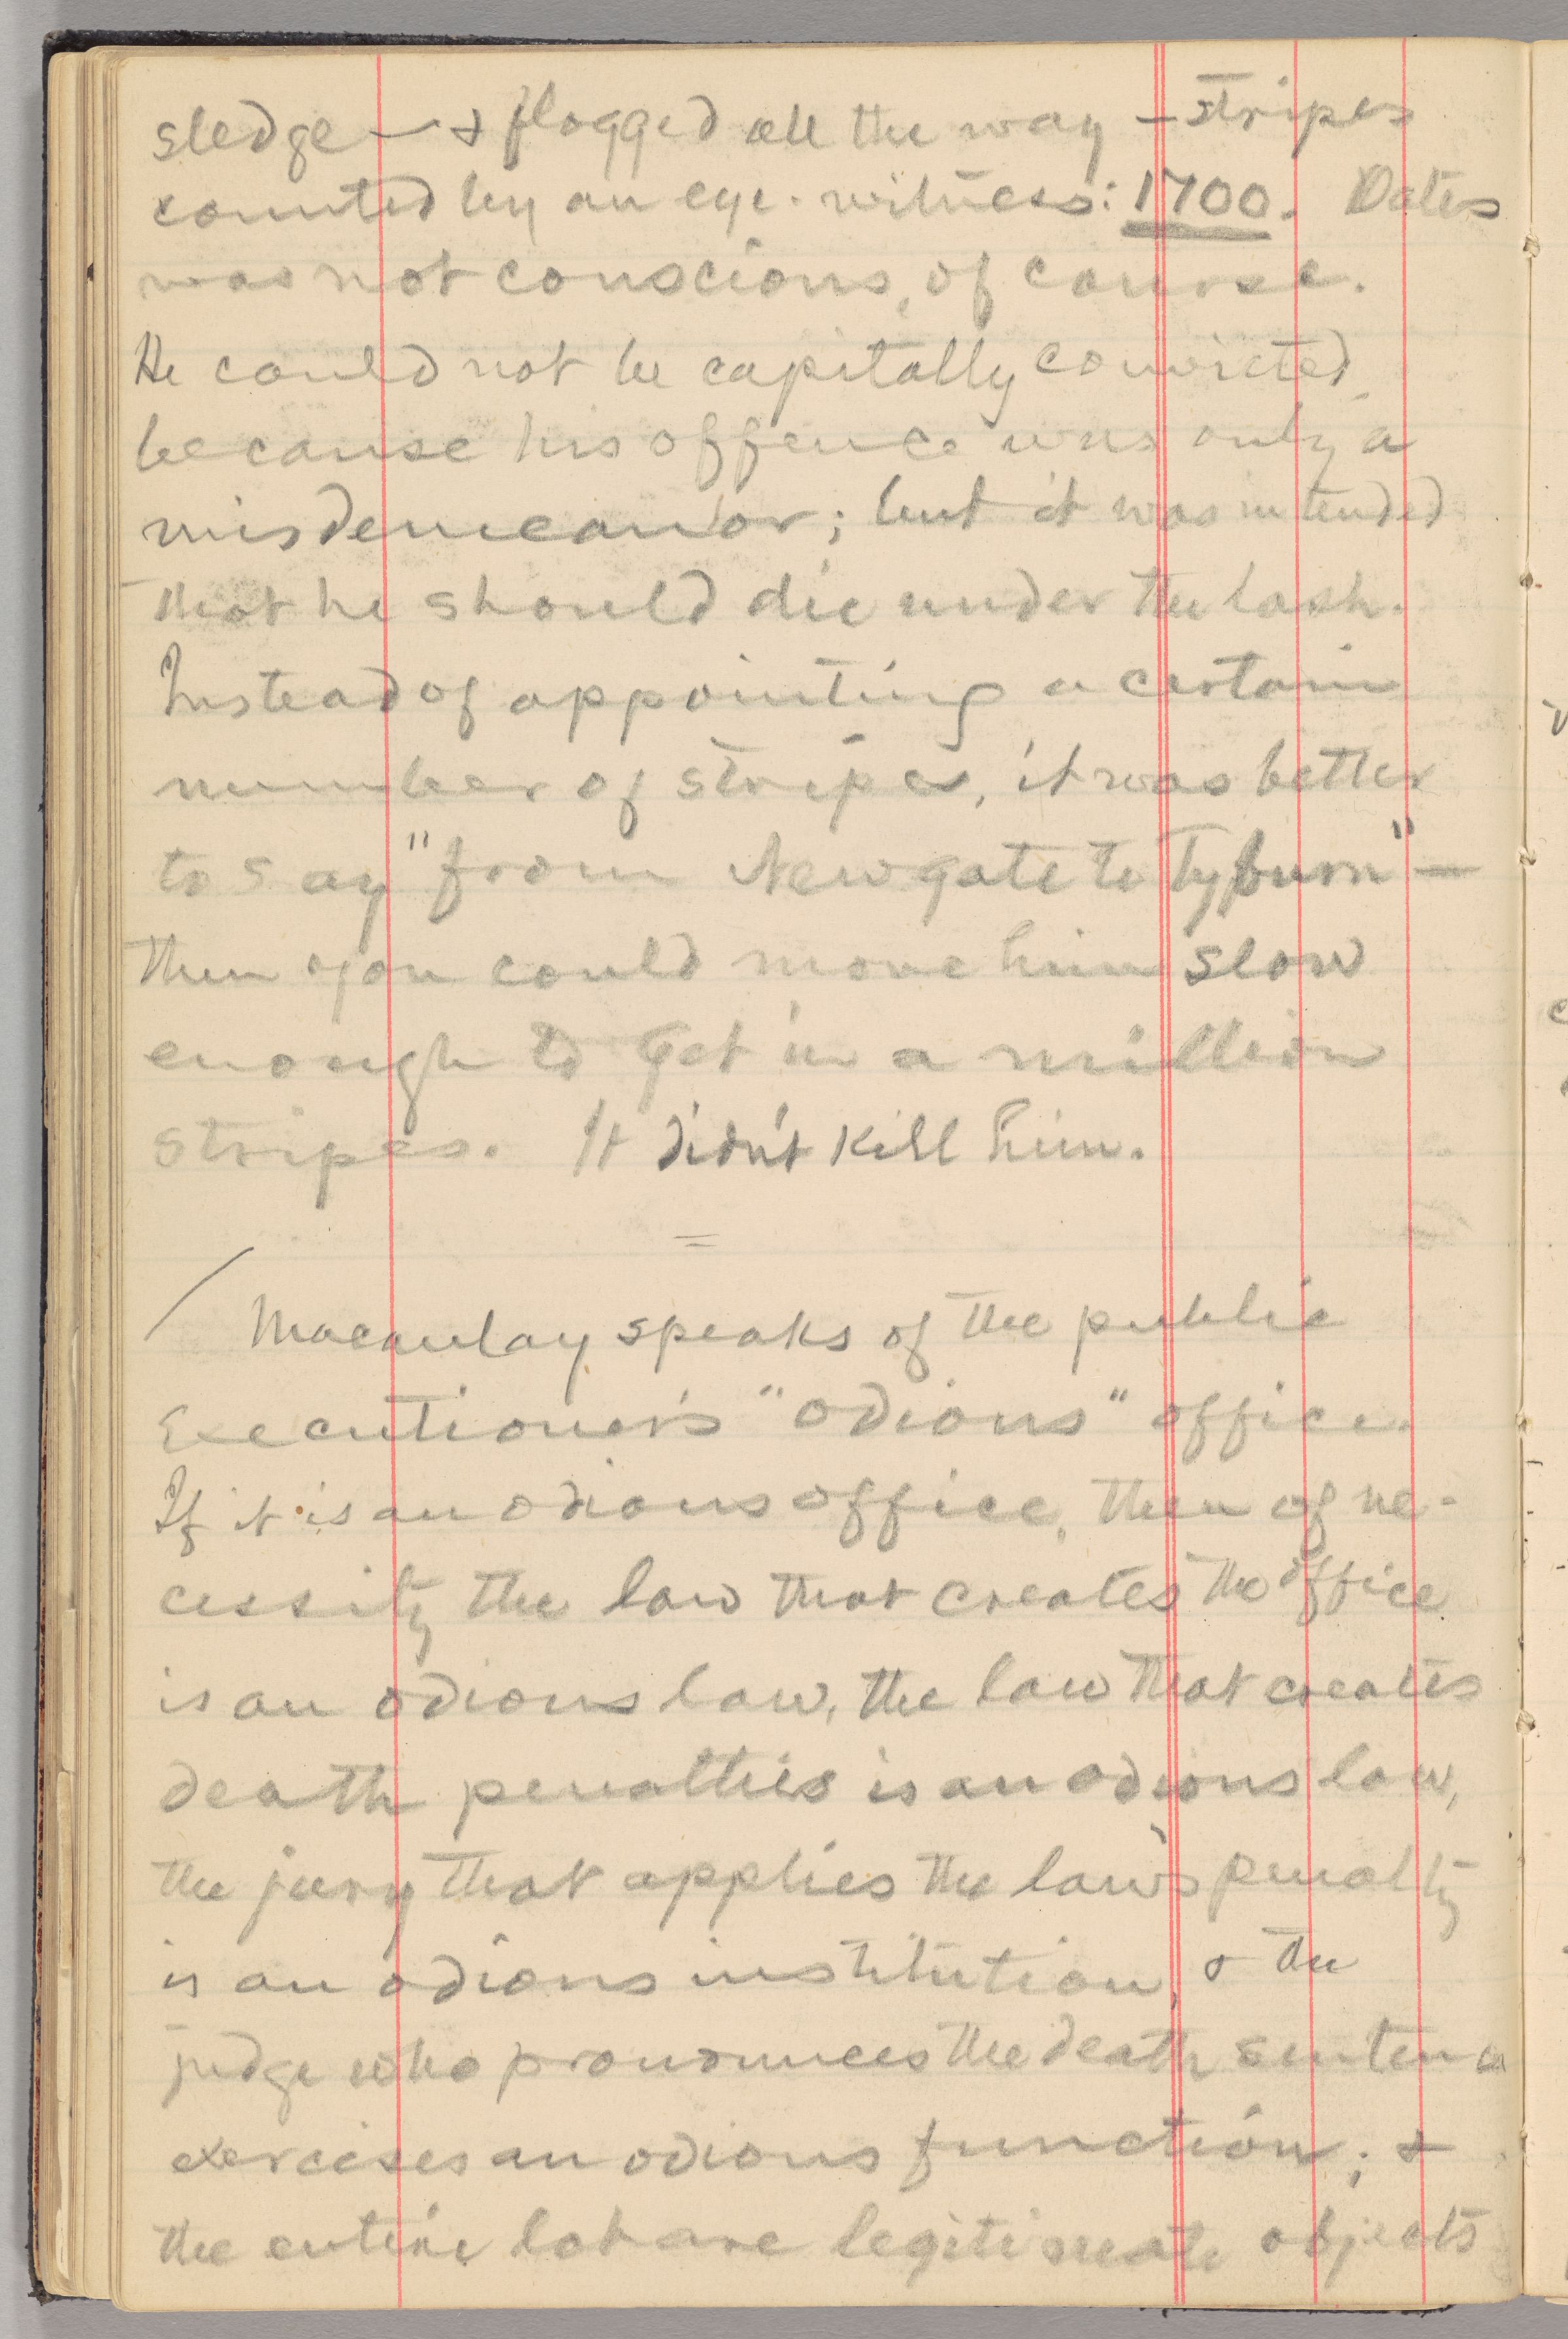 sledge — & flogged all the way — stripes
counted by an eye-witness: 1700. Oates
was not conscious, of course.
He could not be capitally convicted,
because his offence was only a
misdemeanor; but it was intended
that he should die under the lash.
Instead of appointing a certain
number of stripes, it was better
to say "from Newgate to Tyburn" —
then you could move him slow
enough to get in a million
stripes. It didn't kill him.
=
/ Macaulay speaks of the public
executioner's "odious" office.
If it is an odious office, then of ne-
cessity the law that creates the office
is an odious law, the law that creates
death penalties is an odious law,
the jury that applies the law's penalty
is an odious institution, & the
judge who pronounces the death sentence
exercises an odious function; &
the entire lot are legitimate objects